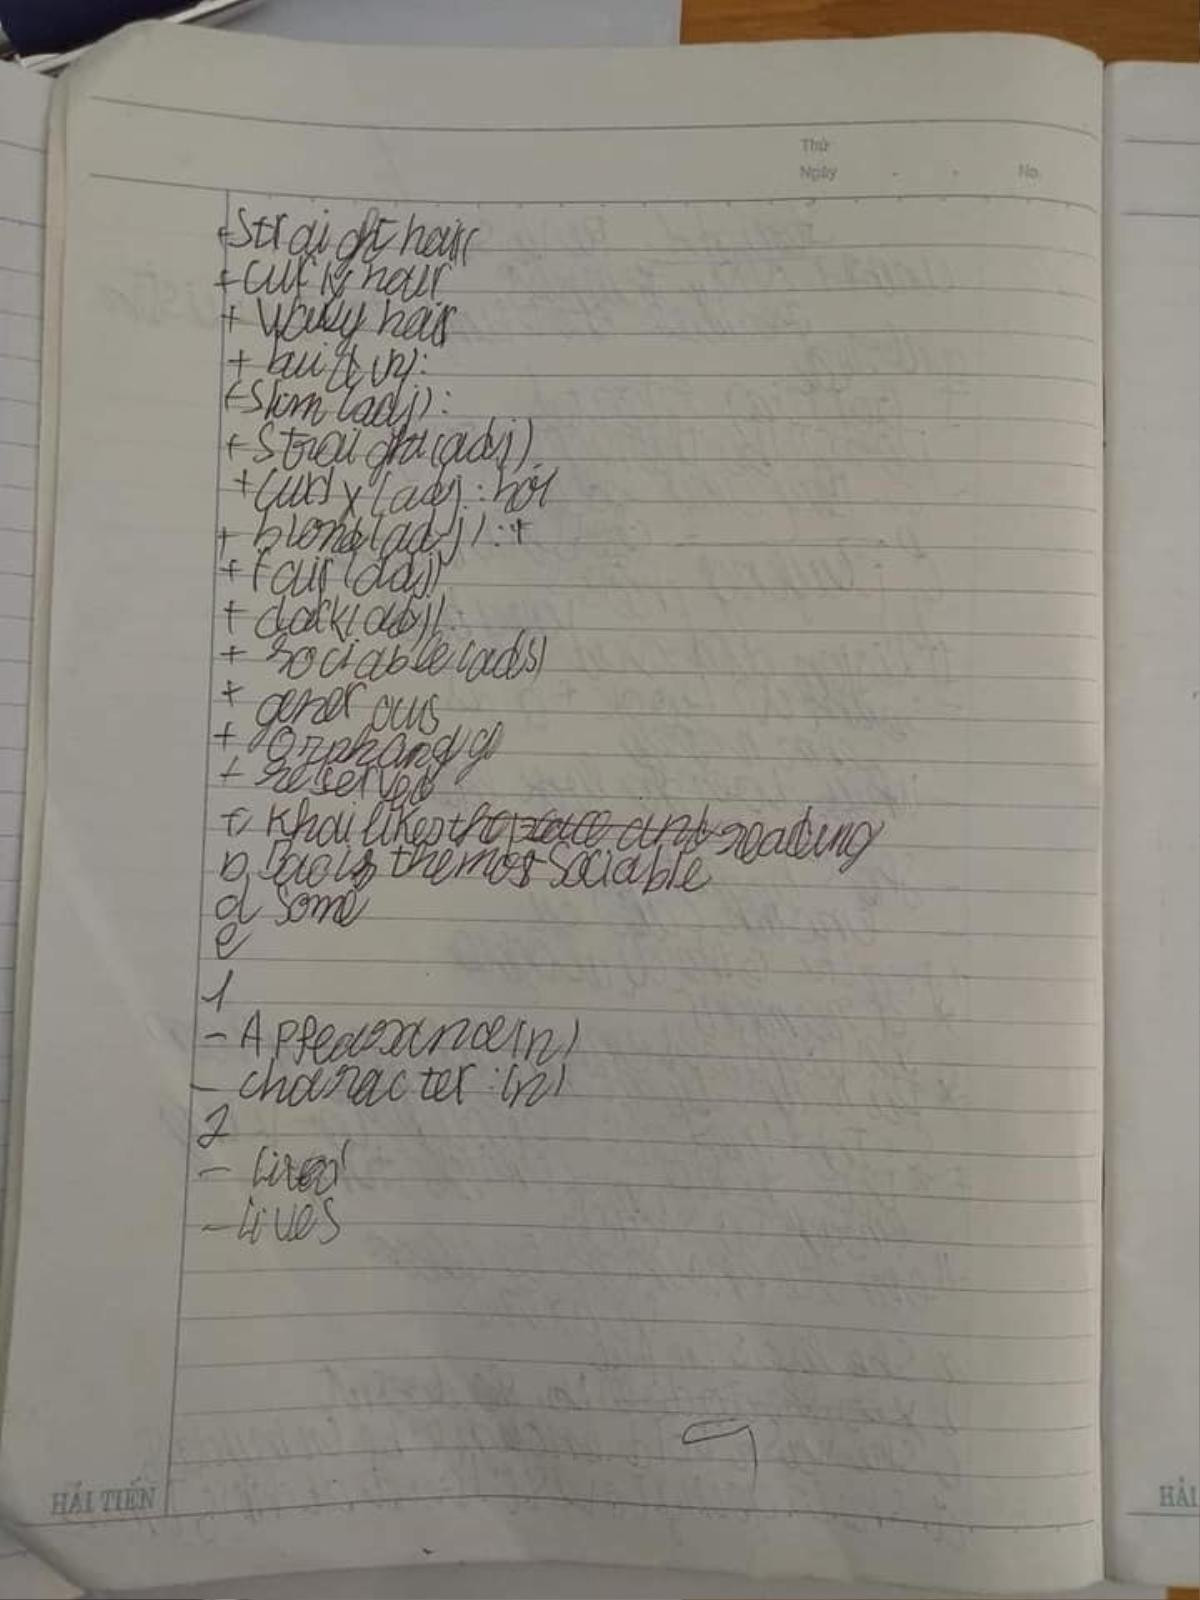 Thứ
Ngày No.
+ Straight hair
+ curly hair
+ Wavy hair
+ buil(n):
+ Slim (adj):
+ Straight (adj)
+ Curly (adj) :
+ blond (adj) : +
+ Fair (adj)
+ dark (adj) :
+ sociable (adj)
+ generous
+
+ reserved
c Khai likes reading
b is the mos sociable
d some
e
1
- Appearance (n)
- character : (n)
2
- lived
- lives
HẢI TIẾN
HẢI